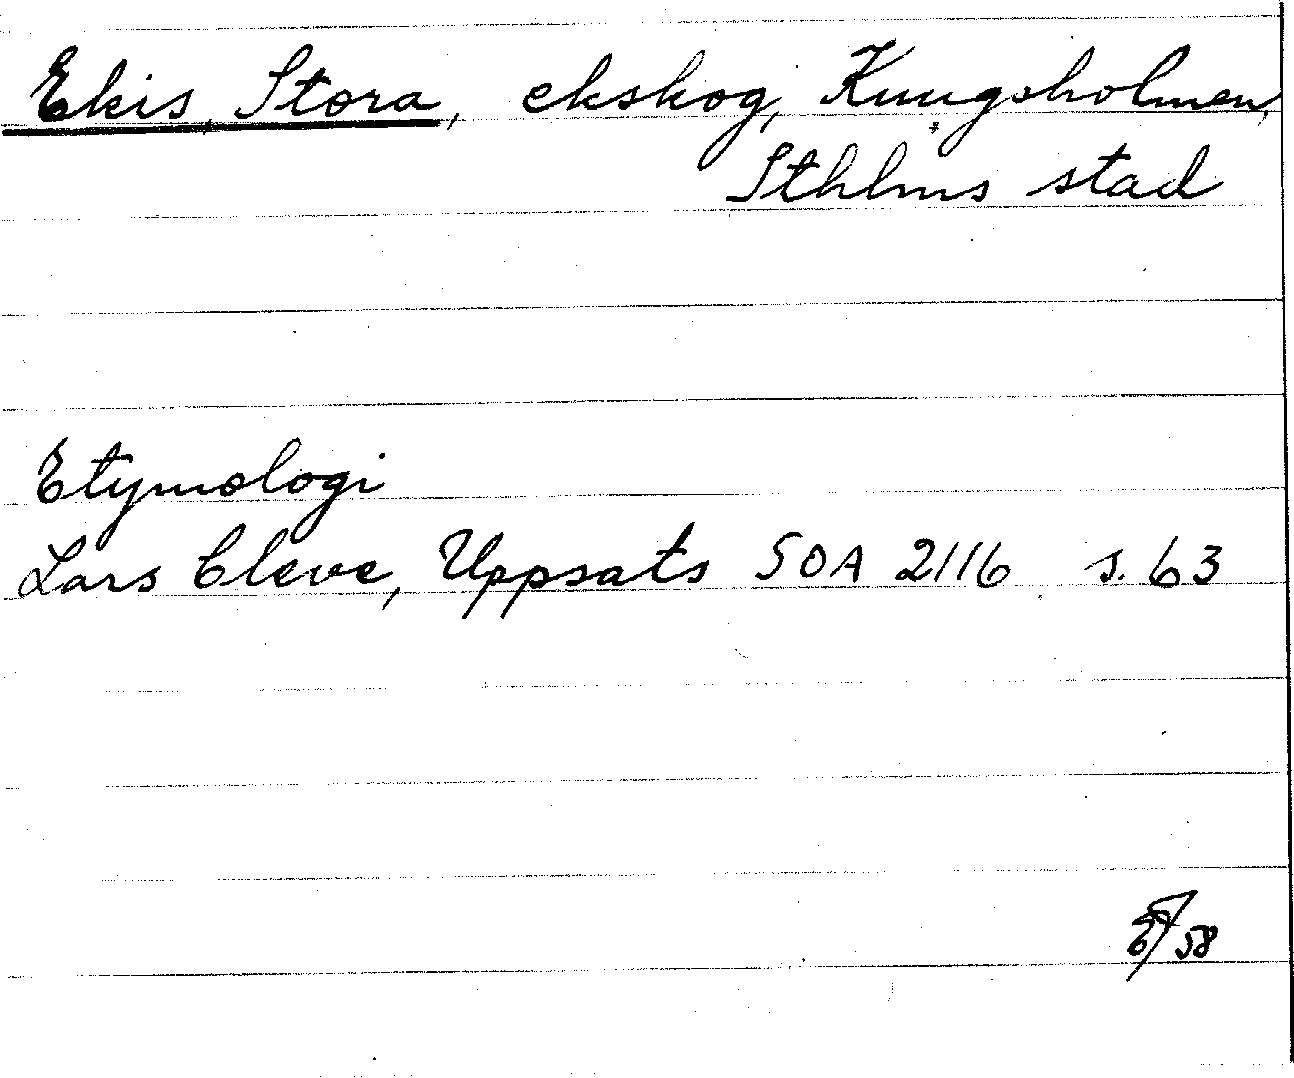 Ekis, Stora, ekskog, Kungsholmen,
Sthlms stad
Etymologi
Lars Cleve, Uppsats SOA 2116 s. 63
58